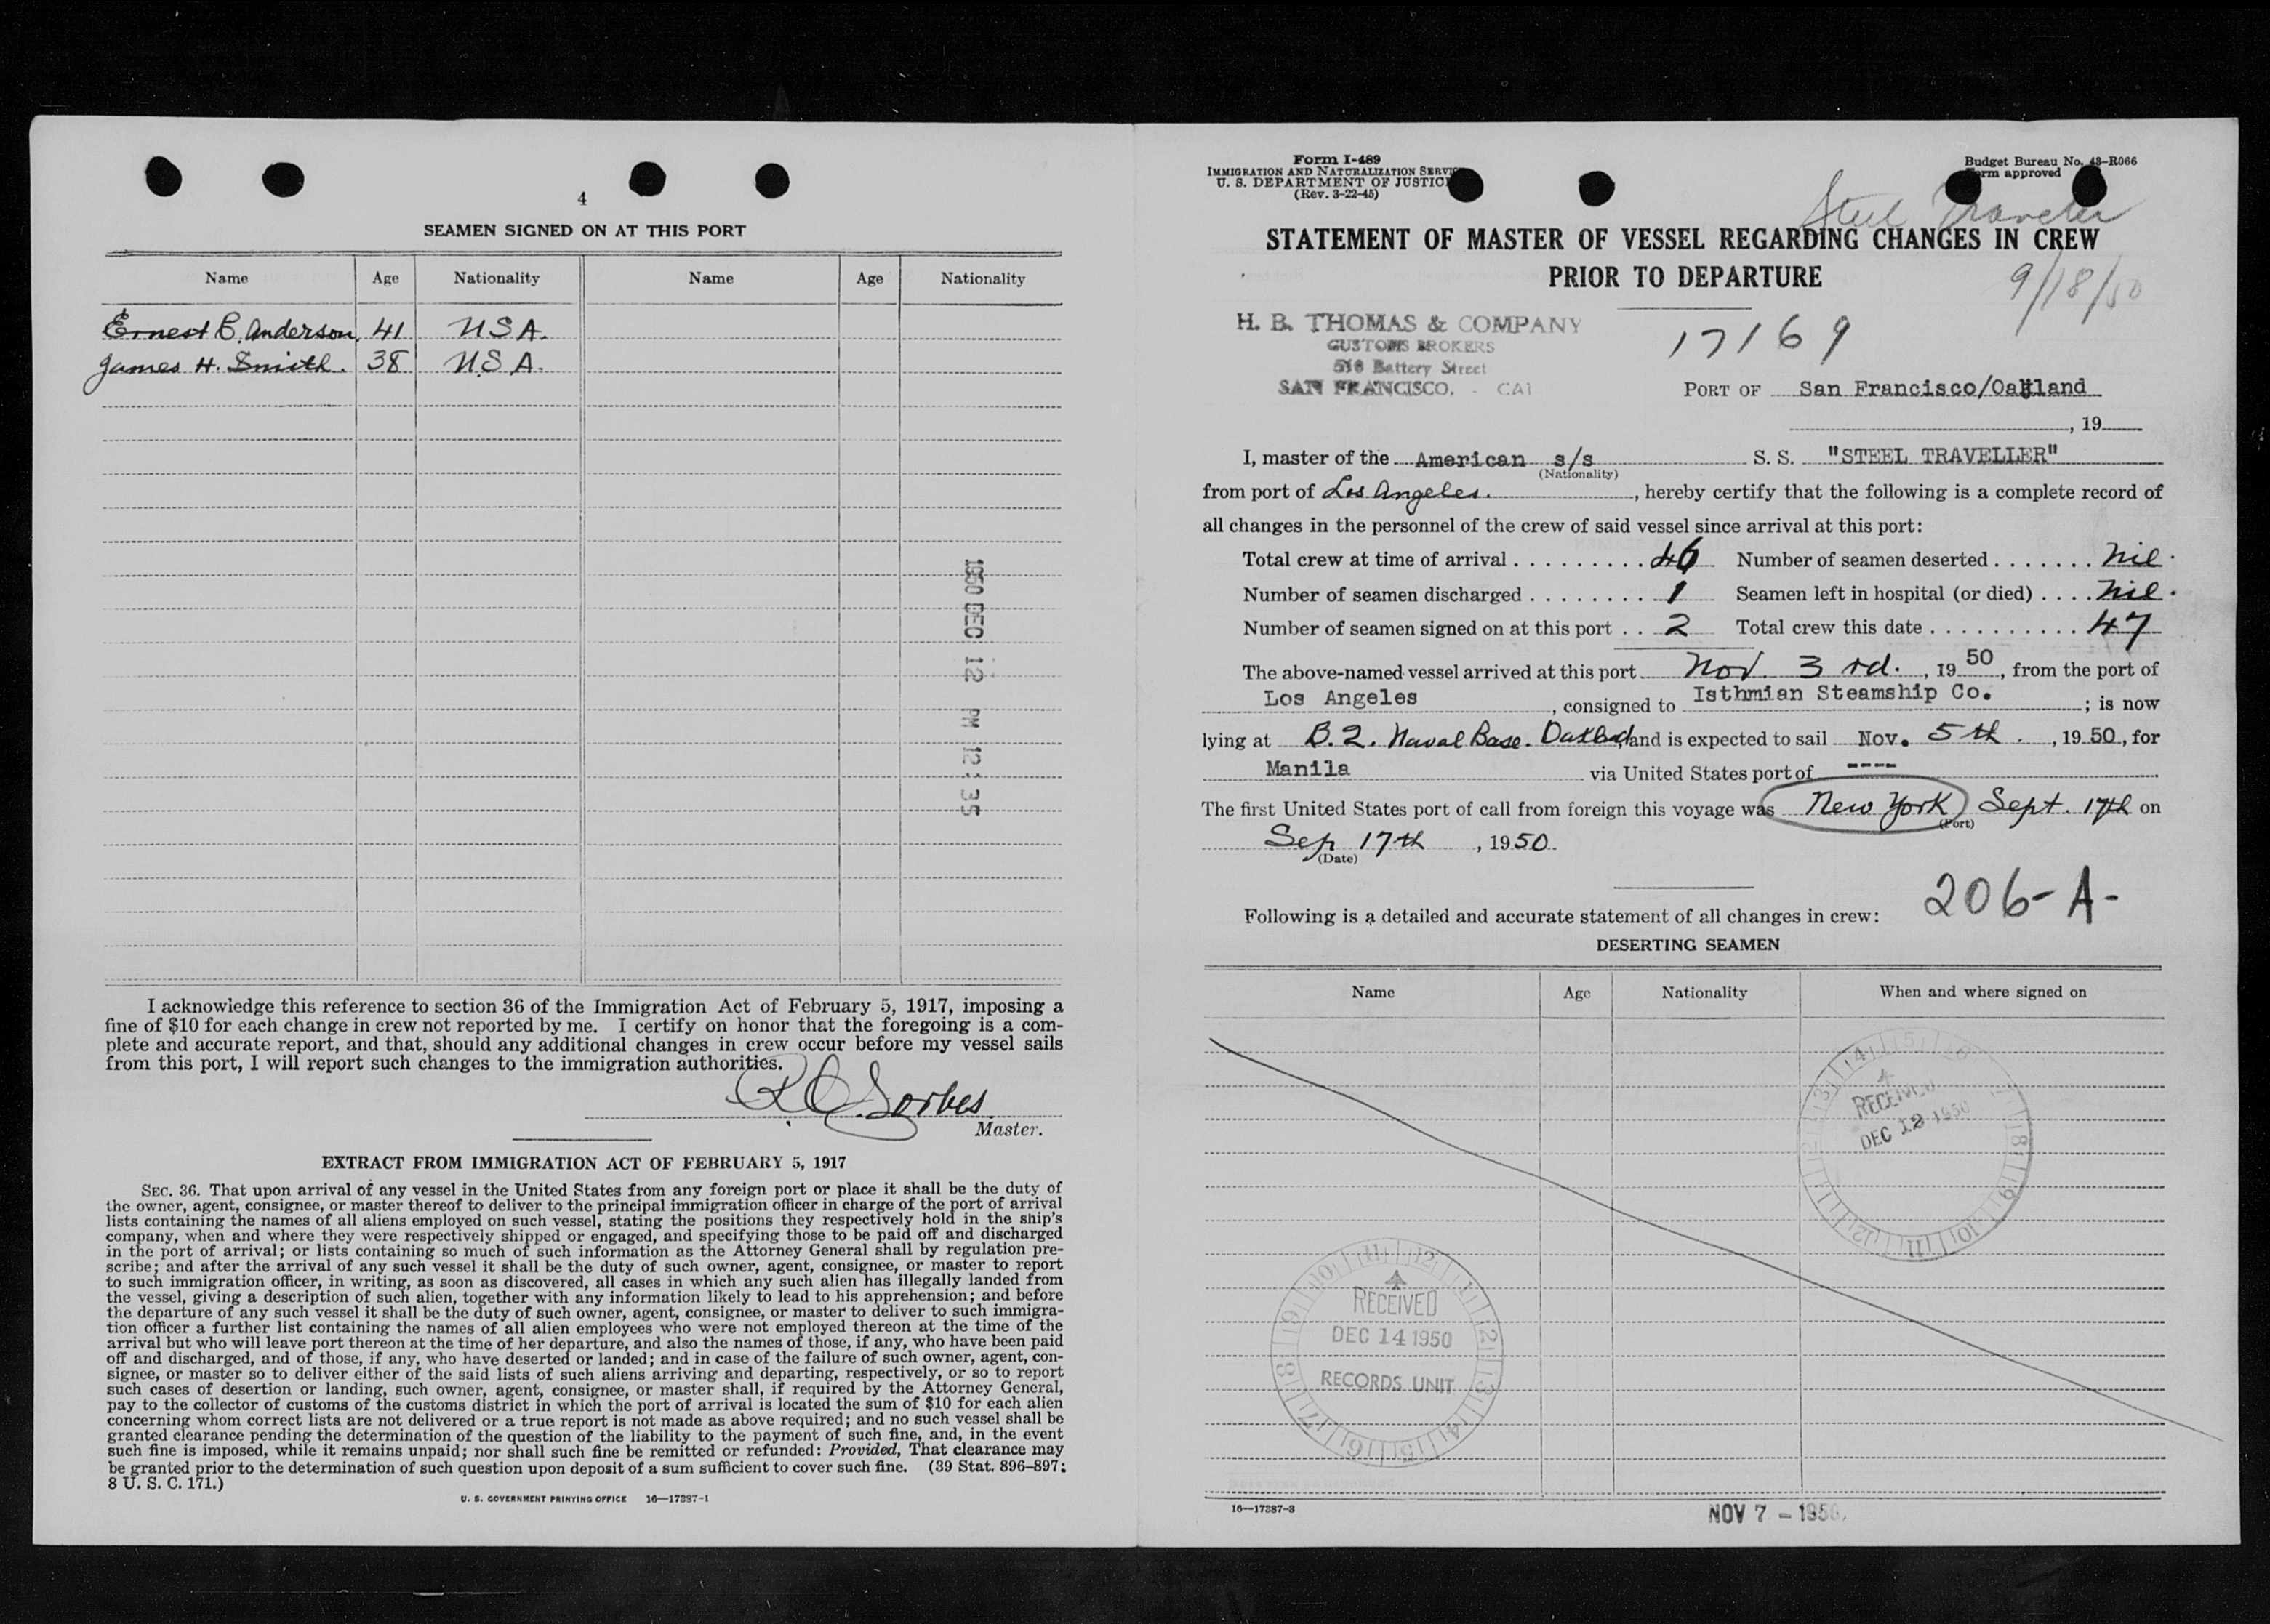 4
SEAMEN SIGNED ON AT THIS PORT
Name Age Nationality Name Age Nationality
Ernest B. Anderson. 41 USA.
James H. Smith. 38 U.S.A.
1950 DEC 12 PM 12:35
I acknowledge this reference to section 36 of the Immigration Act of February 5, 1917, imposing a
fine of $10 for each change in crew not reported by me. I certify on honor that the foregoing is a com-
plete and accurate report, and that, should any additional changes in crew occur before my vessel sails
from this port, I will report such changes to the immigration authorities.
Master.
EXTRACT FROM IMMIGRATION ACT OF FEBRUARY 5, 1917
SEC. 36. That upon arrival of any vessel in the United States from any foreign port or place it shall be the duty of
the owner, agent, consignee, or master thereof to deliver to the principal immigration officer in charge of the port of arrival
lists containing the names of all aliens employed on such vessel, stating the positions they respectively hold in the ship's
company, when and where they were respectively shipped or engaged, and specifying those to be paid off and discharged
in the port of arrival; or lists containing so much of such information as the Attorney General shall by regulation pre-
scribe; and after the arrival of any such vessel it shall be the duty of such owner, agent, consignee, or master to report
to such immigration officer, in writing, as soon as discovered, all cases in which any such alien has illegally landed from
the vessel, giving a description of such alien, together with any information likely to lead to his apprehension; and before
the departure of any such vessel it shall be the duty of such owner, agent, consignee, or master to deliver to such immigra-
tion officer a further list containing the names of all alien employees who were not employed thereon at the time of the
arrival but who will leave port thereon at the time of her departure, and also the names of those, if any, who have been paid
off and discharged, and of those, if any, who have deserted or landed; and in case of the failure of such owner, agent, con-
signee, or master so to deliver either of the said lists of such aliens arriving and departing, respectively, or so to report
such cases of desertion or landing, such owner, agent, consignee, or master shall, if required by the Attorney General,
pay to the collector of customs of the customs district in which the port of arrival is located the sum of $10 for each alien
concerning whom correct lists are not delivered or a true report is not made as above required; and no such vessel shall be
granted clearance pending the determination of the question of the liability to the payment of such fine, and, in the event
such fine is imposed, while it remains unpaid; nor shall such fine be remitted or refunded: Provided, That clearance may
be granted prior to the determination of such question upon deposit of a sum sufficient to cover such fine. (39 Stat. 896-897;
8 U. S. C. 171.)
U. S. GOVERNMENT PRINTING OFFICE 16—17387-1
Form I-489
IMMIGRATION AND NATURALIZATION SERVICE
U. S. DEPARTMENT OF JUSTICE
(Rev. 3-22-45)
Budget Bureau No. 43-R066
Form approved
Steel Traveler
STATEMENT OF MASTER OF VESSEL REGARDING CHANGES IN CREW
PRIOR TO DEPARTURE
9/18/50
H. B. THOMAS & COMPANY
CUSTOMS BROKERS
516 Battery Street
SAN FRANCISCO, - CAL
17169
PORT OF San Francisco/Oakland
, 19
I, master of the American s/s S. S. "STEEL TRAVELLER"
(Nationality)
from port of Los Angeles. , hereby certify that the following is a complete record of
all changes in the personnel of the crew of said vessel since arrival at this port:
Total crew at time of arrival . . . . . . . . . 46 Number of seamen deserted . . . . . . . nil.
Number of seamen discharged . . . . . . . . 1 Seamen left in hospital (or died) . . . . nil.
Number of seamen signed on at this port . . 2 Total crew this date . . . . . . . . . . . 47
The above-named vessel arrived at this port Nov. 3rd. , 19 50 , from the port of
Los Angeles , consigned to Isthmian Steamship Co. ; is now
lying at B.2. Naval Base. Oakland and is expected to sail Nov. 5th. , 19 50 , for
Manila via United States port of ----
The first United States port of call from foreign this voyage was New York Sept. 17th on
(Port)
Sep 17th , 1950.
(Date)
206-A-
Following is a detailed and accurate statement of all changes in crew:
DESERTING SEAMEN
Name Age Nationality When and where signed on
RECEIVED
DEC 12 1950
RECEIVED
DEC 14 1950
RECORDS UNIT
16—17387-3
NOV 7 - 1950